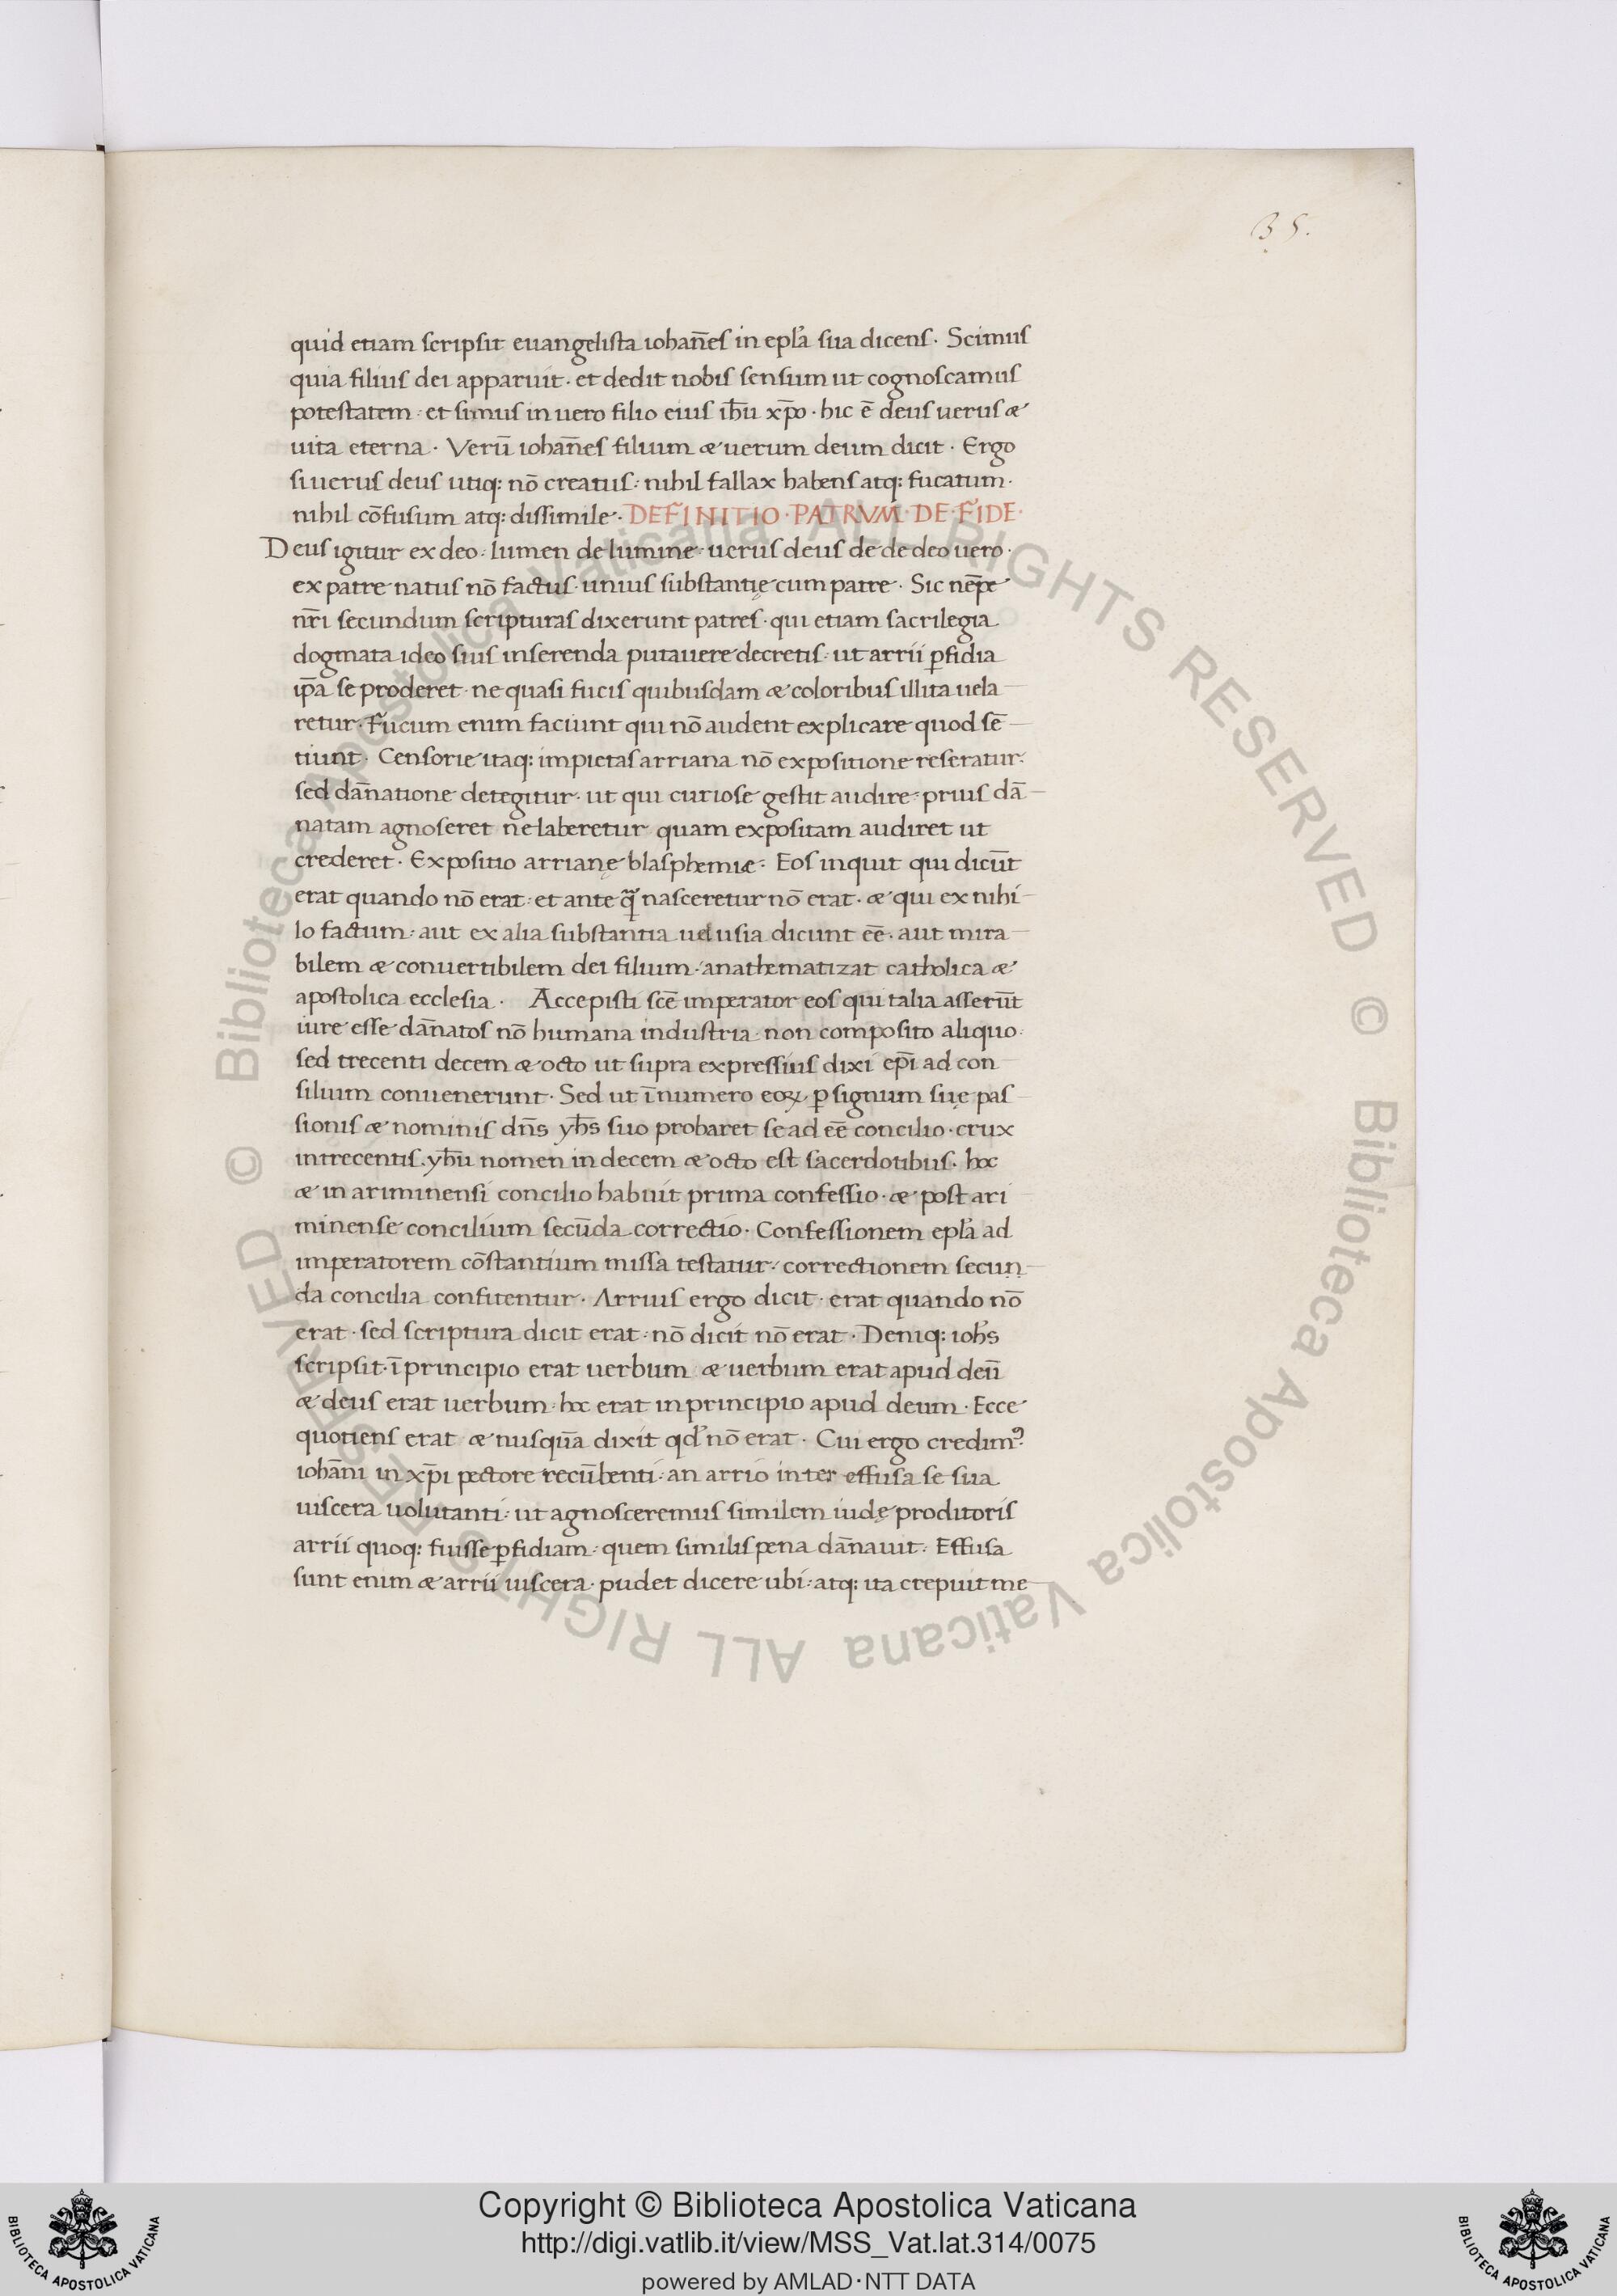 35.
quid etiam scripsit euangelista iohan̄es in epl̄a sua dicens · Scimus
quia filius dei apparuit · et dedit nobis sensum ut cognoscamus
potestatem · et simus in uero filio eius ih̄u xp̄o · hic ē deus uerus æ
uita eterna · Verū iohan̄es filium æ uerum deum dicit · Ergo
si uerus deus utiq: nō creatus : nihil fallax habens atq: fucatum ·
nihil cōfusum atq: dissimile · DEFINITIO · PATRVM · DE · FIDE ·
Deus igitur ex deo : lumen de lumine · uerus deus de de deo uero ·
ex patre natus nō factus · unius substantię cum patre · Sic nēpe
nr̄i secundum scripturas dixerunt patres · qui etiam sacrilegia
dogmata ideo suis inserenda putauere decretis : ut arrii ꝑfidia
ip̄a se proderet · ne quasi fucis quibusdam æ coloribus illita uela
retur · Fucum enim faciunt qui nō audent explicare quod sē
tiunt · Censorie itaq: impietas arriana nō expositione reseratur :
sed dan̄atione detegitur · ut qui curiose gestit audire · prius dā
natam agnoseret ne laberetur quam expositam audiret ut
crederet · Expositio arrianę blasphemiæ · Eos inquit qui dicūt
erat quando nō erat : et ante q̄ nasceretur nō erat · æ qui ex nihi
lo factum : aut ex alia substantia uel usia dicunt eē · aut mira
bilem æ conuertibilem dei filium · anathematizat catholica æ
apostolica ecclesia · Accepisti scē imperator eos qui talia asserūt
iure esse dan̄atos nō humana industria · non composito aliquo ·
sed trecenti decem æ octo ut supra expressius dixi ep̄i ad con
silium conuenerunt · Sed ut ī numero eoꝝ · ꝑ signum suę pas
sionis æ nominis dn̄s yh̄s suo probaret se ad eē concilio · crux
in trecentis · yh̄u nomen in decem æ octo est sacerdotibus · hoc
æ in ariminensi concilio habuit prima confessio · æ post ari
minense concilium secūda correctio · Confessionem epl̄a ad
imperatorem cōstantium missa testatur : correctionem secun
da concilia confitentur · Arrius ergo dicit · erat quando nō
erat · sed scriptura dicit erat : nō dicit nō erat · Deniq: ioh̄s
scripsit · ī principio erat uerbum æ uerbum erat apud deū
æ deus erat uerbum · hoc erat in principio apud deum · Ecce
quotiens erat æ nusquā dixit qd̄ nō erat · Cui ergo credimꝰ
iohāni in xp̄i pectore recūbenti : an arrio inter effusa se sua
uiscera uolutanti : ut agnosceremus similem iudę proditoris
arrii quoq: fuisse ꝑfidiam : quem similis pena dan̄auit · Effusa
sunt enim æ arrii uiscera · pudet dicere ubi : atq: ita crepuit me
© Biblioteca Apostolica Vaticana ALL RIGHTS RESERVED © Biblioteca Apostolica Vaticana ALL RIGHTS RESERVED
BIBLIOTECA APOSTOLICA VATICANA
Copyright © Biblioteca Apostolica Vaticana
http://digi.vatlib.it/view/MSS_Vat.lat.314/0075
powered by AMLAD·NTT DATA
BIBLIOTECA APOSTOLICA VATICANA